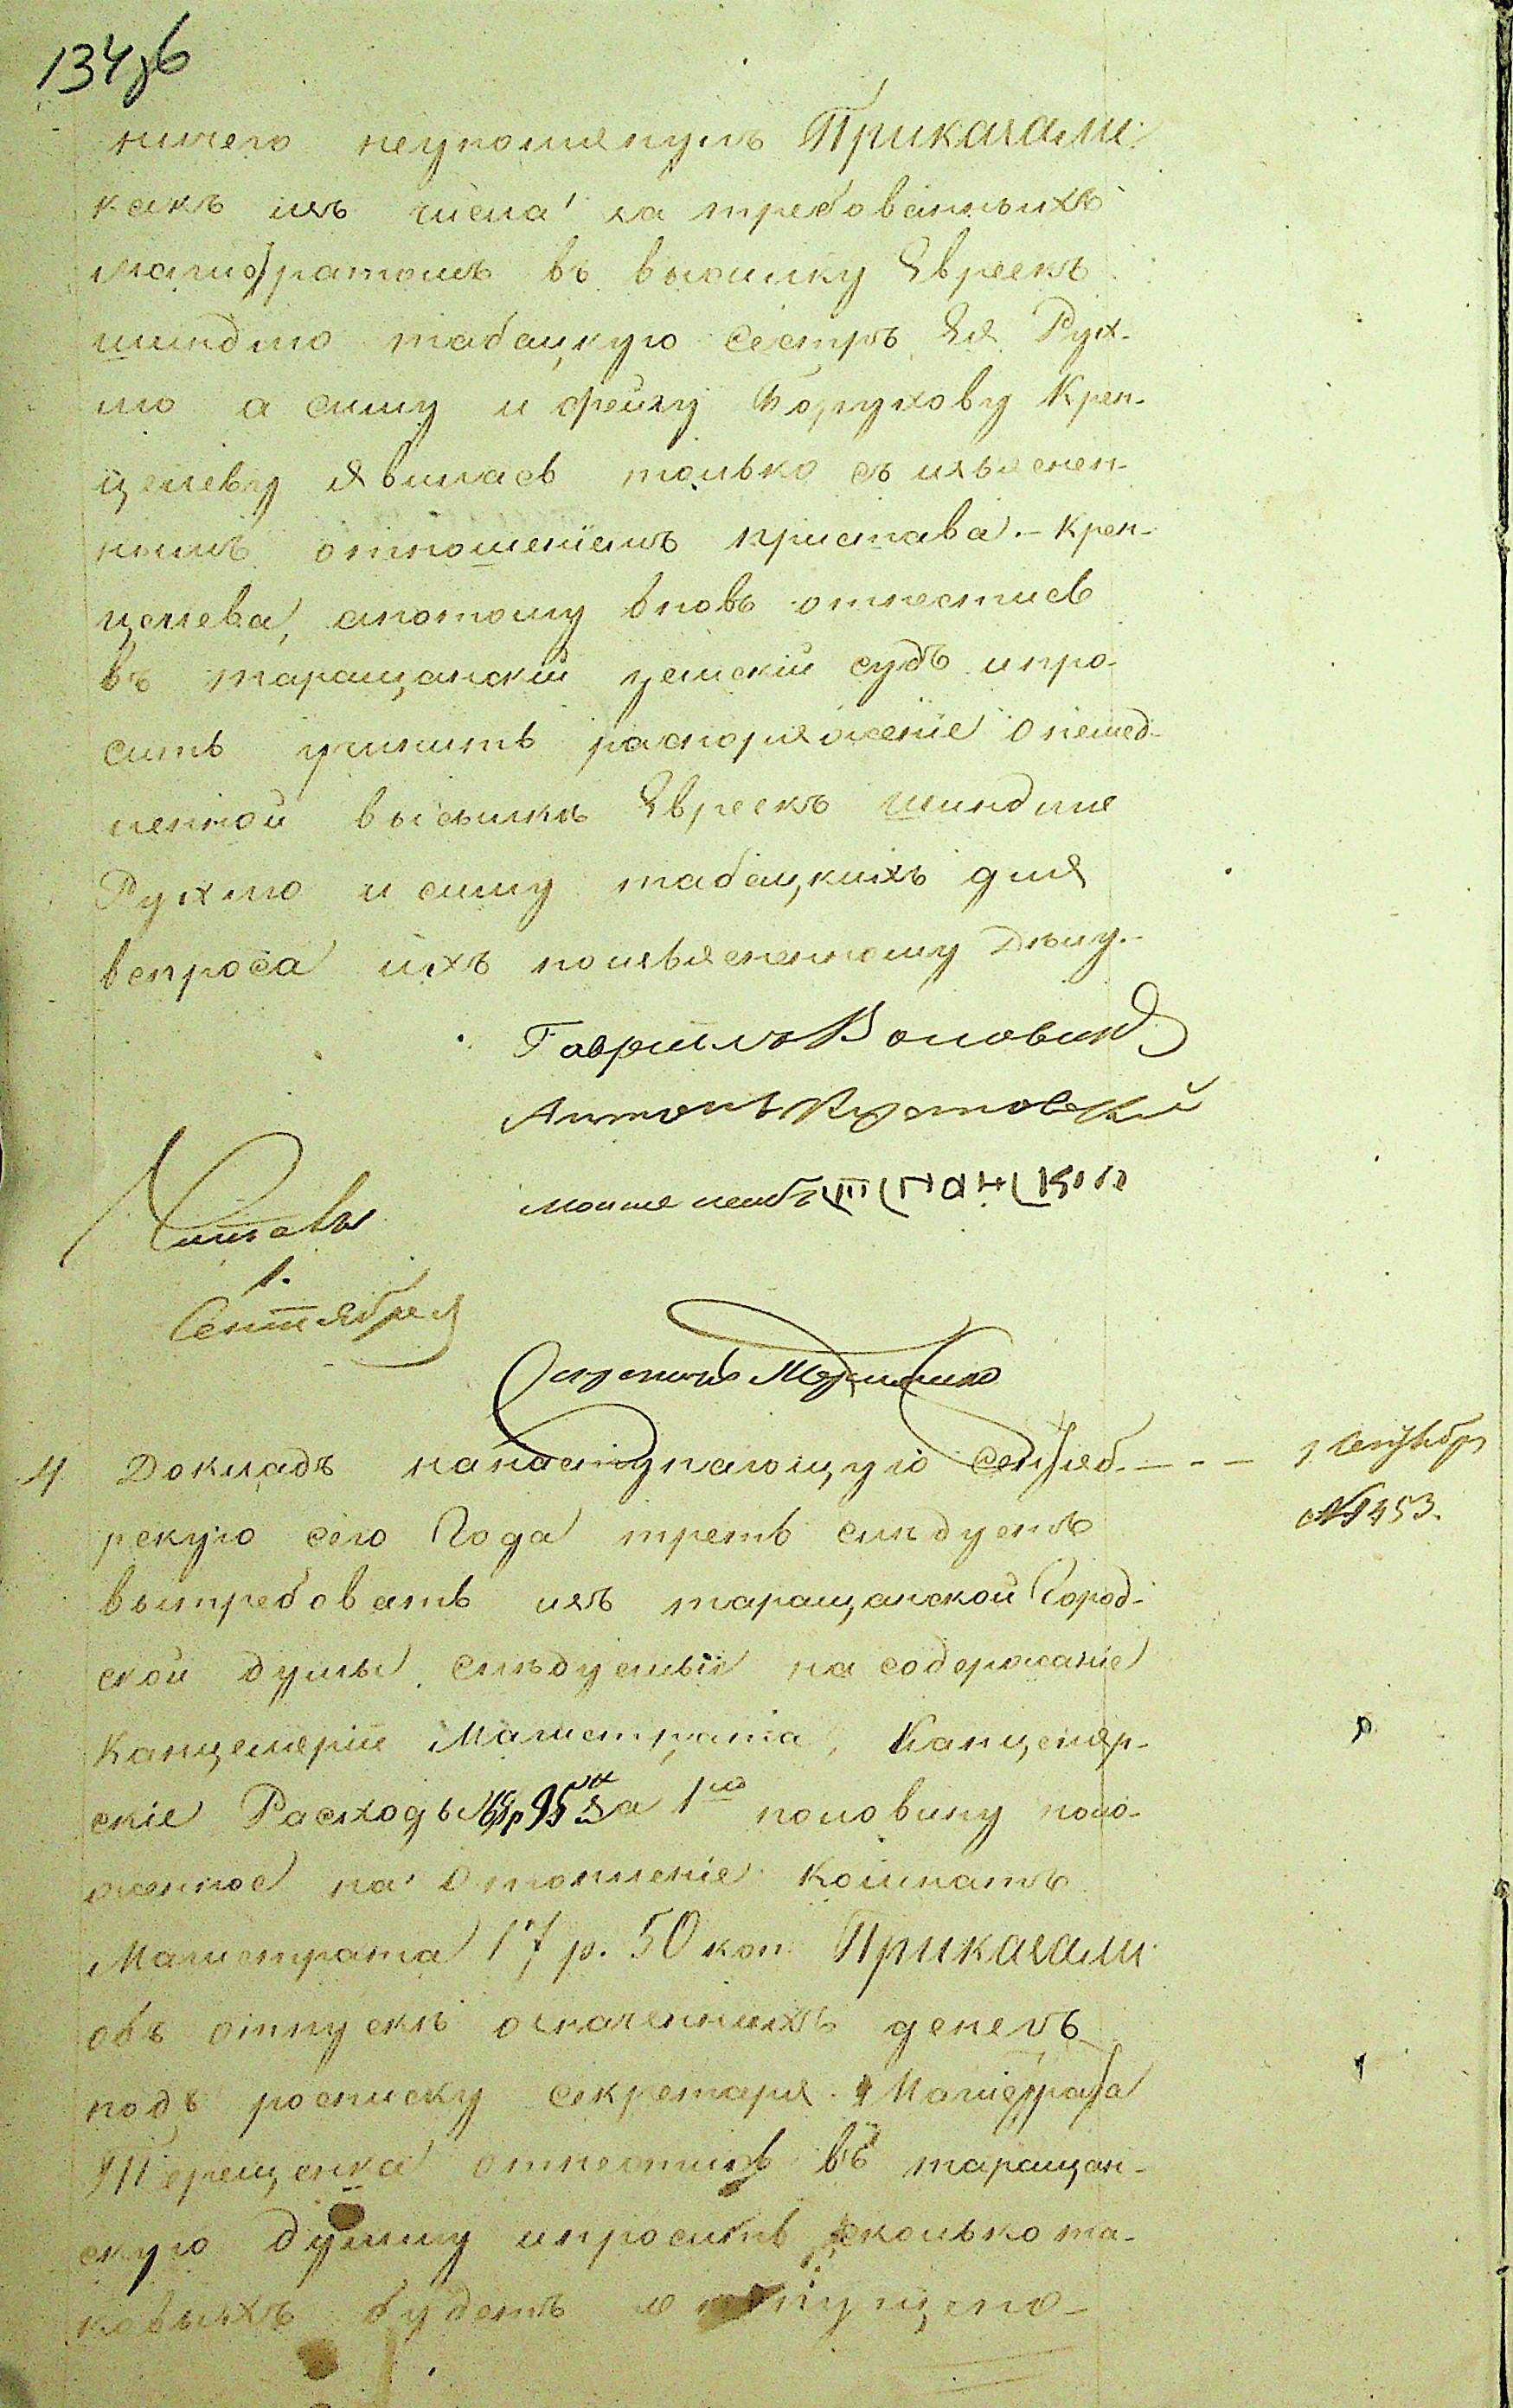 134об
ничего неупомянулъ Приказали
какъ изъ числа затребованныхъ
магистратомъ въ высилку Евреекъ
шиндлю табацкую сестръ Ея Рух-
лю а симу и фейгу Борухову Крен-
целеву явилась только съ изъяснен-
нымъ отношениемъ пристава. – Крен-
целева, апотому вновь отнестись
въ таращанскій земскій судъ ипро-
сить учинить распоряженіе о немед-
ленной высылкѣ Евреекъ шиндлю
Рухлю и симу табацкихъ для
вопроса ихъ поизъясненному Дѣлу. –
Гаврило Воловик
Антонъ Кустовский
мошко лейбъ
Читалъ
1.
Сентября
4 Докладъ нанаступающую сентяб. – – – 1 сентября
рскую сего Года треть слѣдуетъ № 1453.
вытребовать изъ таращанской Город-
ской думы слѣдуемыя на содержаніе
Канцелярии Магистрата, Канцеляр-
скіе Расходы за 1ю половину поло-
женное на Отопленіе комнатъ
Магистрата 17 р. 50 коп Приказали
объ отпускѣ означенныхъ денегъ
подъ росписку секретаря Магистрата
Терещенка отнестись въ таращан-
скую думу ипросить сколько та-
ковыхъ будетъ отпущено –